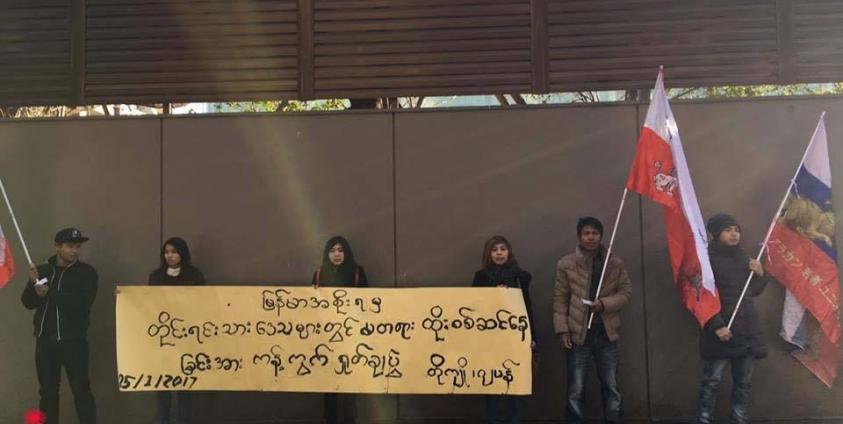 မြန်မာအစိုးရမှ
တိုင်းရင်းသားဒေသများတွင် မတရား ထိုးစစ်ဆင်နေ
ခြင်းအား ကန့်ကွက် ရှုတ်ချပွဲ တိုကျို၊ဂျပန်
25/1/2017
アラカン